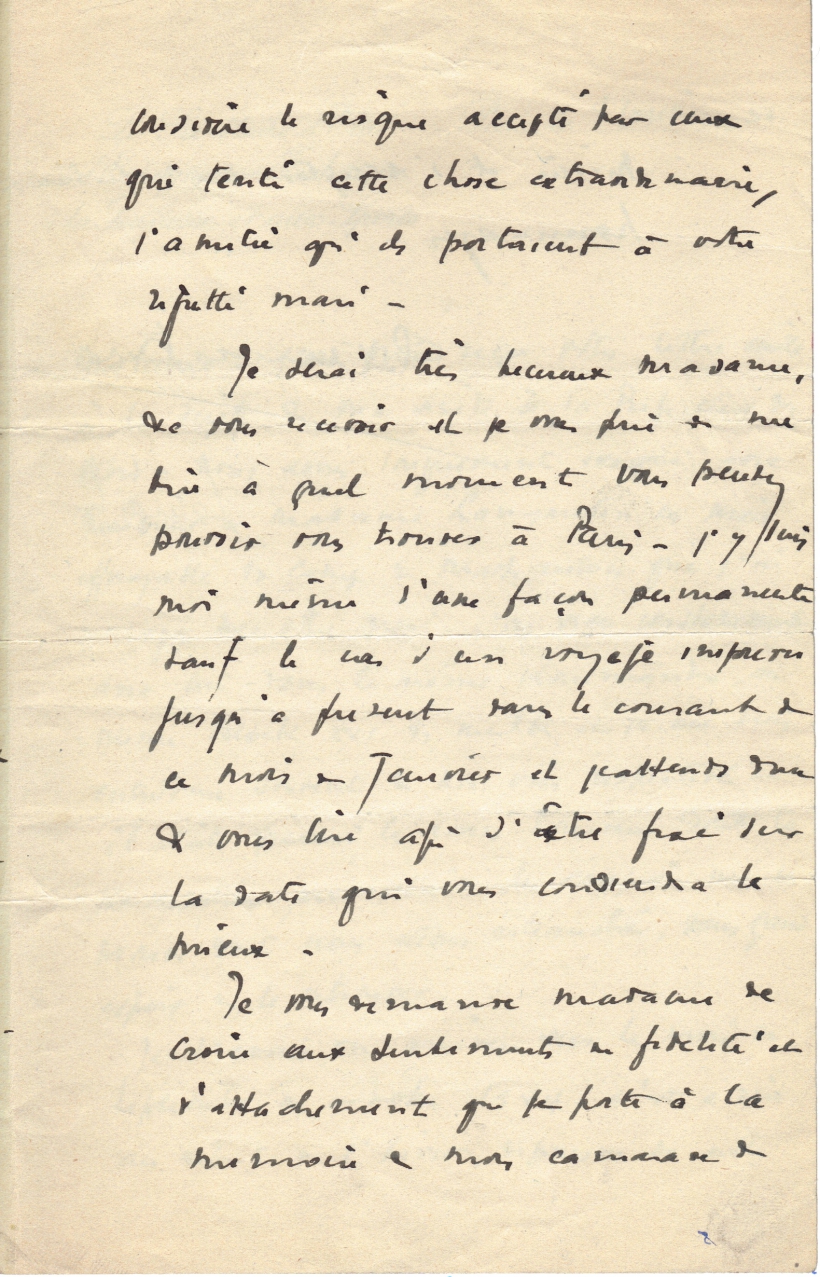 considère le risque accepté par ceux
qui tenté cette chose extraordinaire,
l'amitié qu'ils portaient à votre
regretté mari -
Je serai très heureux madame,
de vous recevoir et je vous prie de me
dire à quel moment vous pensez
pouvoir vous trouver à Paris - j'y suis
moi même d'une façon permanente
sauf le cas d'un voyage imprévu
jusqu'à présent dans le courant de
ce mois de Janvier et j'attends donc
de vous lire afin d'être fixé sur
la date qui vous conviendra le
mieux -
Je vous demande madame de
croire aux sentiments de fidélité et
d'attachement que je porte à la
mémoire de mon camarade de